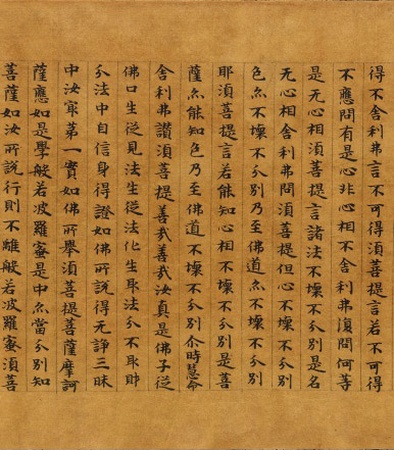 得不舍利弗言不可得須菩提言若不可得
不應問有是心非心相不舍利弗復問何等
是无心相須菩提言諸法不壞不分別是名
无心相舍利弗問須菩提但心不壞不分別
色亦不壞不分別乃至佛道亦不壞不分別
耶須菩提言若能知心相不壞不分別是菩
薩亦能知色乃至佛道不壞不分別尒時慧命
舍利弗讚須菩提善哉善哉汝真是佛子從
佛口生從見法生從法化生取法分不取財
分法中自信身得證如佛所說得无諍三昧
中汝㝡第一實如佛所舉須菩提菩薩摩訶
薩應如是學般若波羅蜜是中亦當分別知
菩薩如汝所說行則不離般若波羅蜜須菩